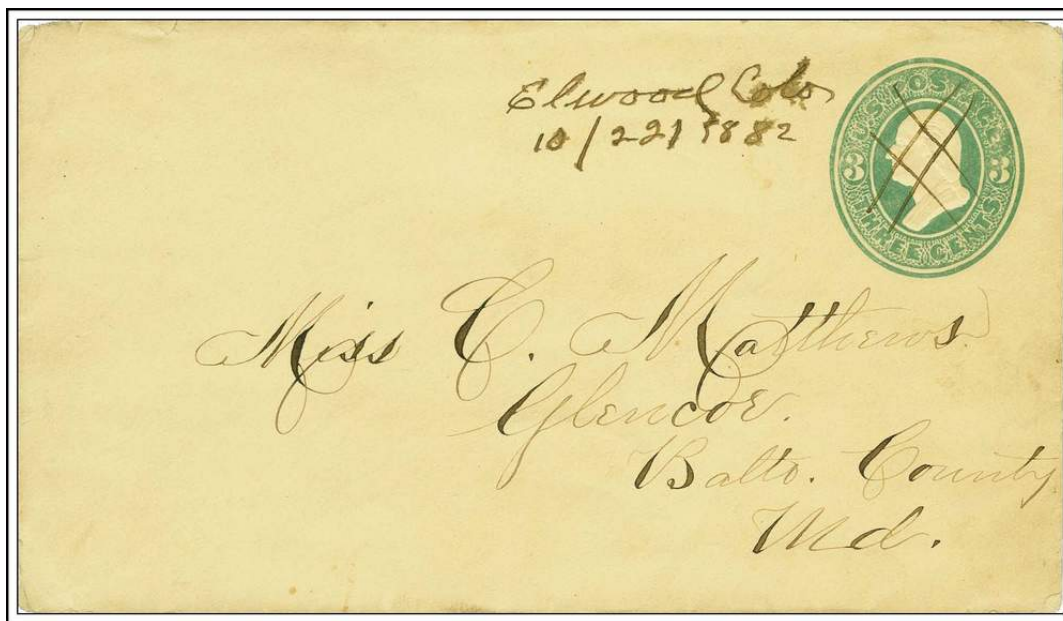 Elwood Colo
10/22/1882
U.S. POSTAGE
3 3
THREE CENTS
Miss C. Matthews.
Glencoe.
Balto. County
Md.